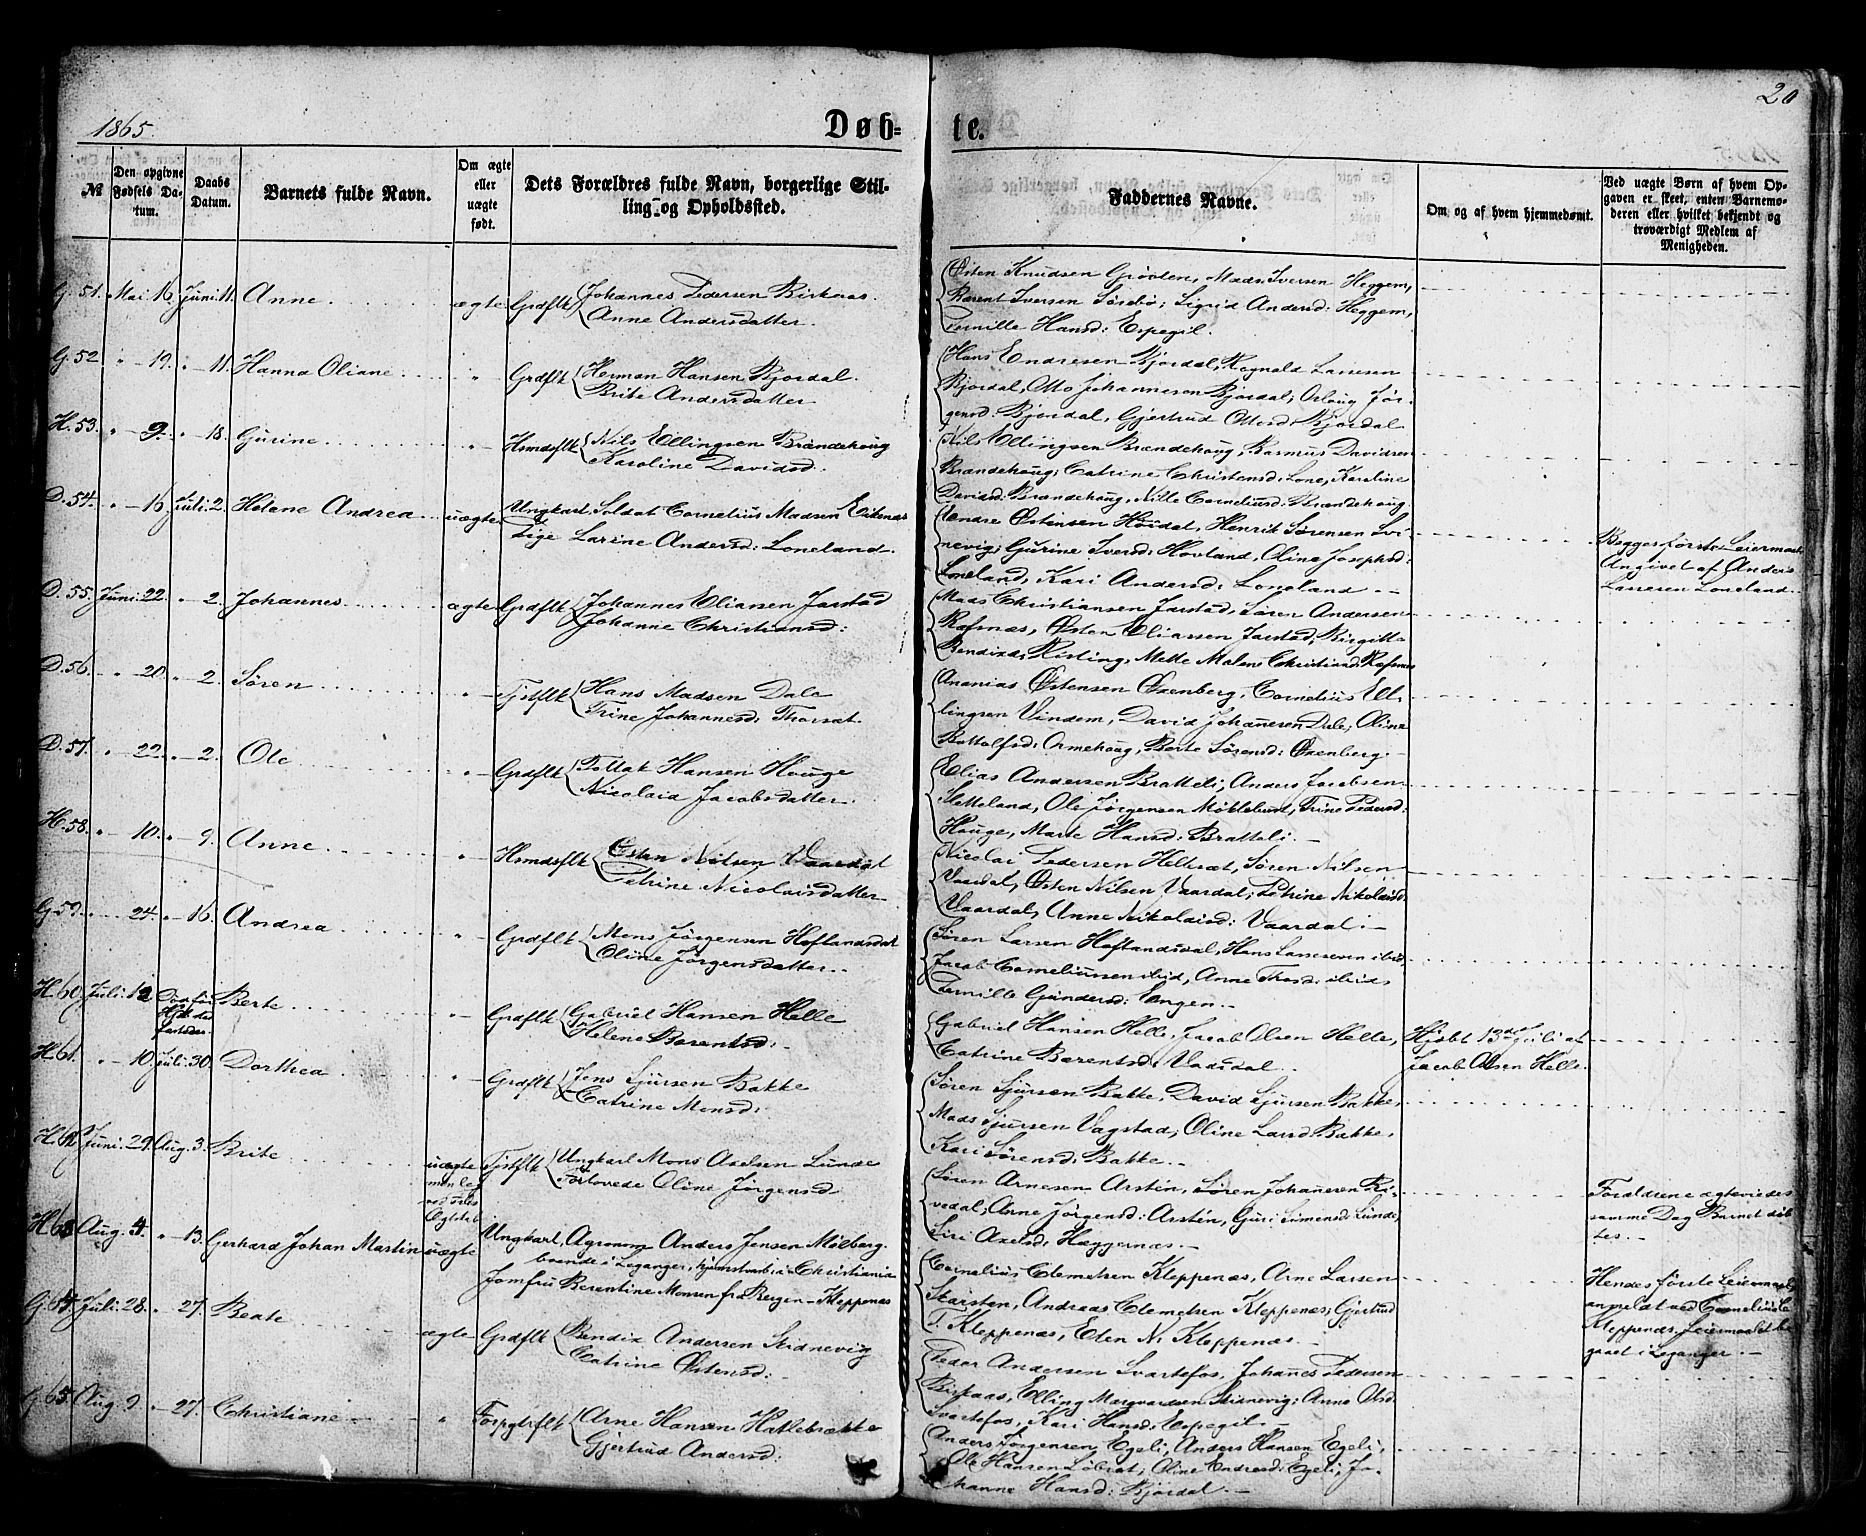 1865.
Døb-
te.
20
№
Den opgivne Fødsels Datum.
Daabs Datum.
Barnets fulde Navn.
Om ægte eller uægte født.
Dets Forældres fulde Navn, borgerlige Stilling og Opholdssted.
Faddernes Navne.
Om og af hvem hjemmedøbt.
Ved uægte Børn af hvem Opgaven er skeet, enten Barnemoderen eller hvilket bekjendt og troværdigt Medlem af Menigheden.
G. 51. Mai 16 Juni 11. Anne ægte Grdflk Johannes Pedersen Birkaas.
Anne Andersdatter.
Østen Knudsen Grøvlen, Mads Iversen Heggem,
Barent Iversen Sørebø; Sigrid Andersd: Heggem,
Pernille Hansd: Espegil.
G. 52 " 19. " 11. Hanna Oliane " Grdflk Herman Hansen Bjordal.
Brite Andersdatter
Hans Endresen Bjordal, Rognald Larsen
Bjordal, Otto Johannesen Bjordal; Orloug Jør-
gensd: Bjordal, Gjertrud Ottersd: Bjordal
H. 53. " 9. " 18. Gurine " Hsmdsflk Nils Ellingsen Brændehoug
Karoline Davidsd.
Nils Ellingsen Brændehoug, Rasmus Davidsen
Brændehoug; Catrine Christensd: Lone, Karoline
Davidsd: Brændehoug, Nille Corneliusd: Brændehoug
D. 54. " 16. Juli 2. Helene Andrea uægte Ungkarl Soldat Cornelius Madsen Eikenæs
Pige Larine Andersd: Loneland.
Endre Østensen Høidal, Henrik Sørensen
nevig; Gurine Iversd: Hovland, Oline Josephsd:
Loneland, Kari Andersd: Loneland.
Begges første Leiermaal
Angivet af Anders
Lassesen Loneland.
D. 55. Juni 22. " 2. Johannes ægte Grdflk Johannes Eliassen Jarstad
Johanne Christiansd:
Mads Christiansen Jarstad, Søren Andersen
Ræfsnæs, Østen Eliassen Jarstad; Birgitte
Bendixd: Kirsting, Mette Malene Christiansd: Ræfsnæs
D. 56. " 20. " 2. Søren " Tjstflk Hans Madsen Dale
Trine Johannesd: Thorsat.
Ananias Østensen Oxenberg, Cornelius El-
lingsen Vindem, David Johannesen Dale; Oline
Bottolfsd: Ormehoug, Berte Sørensd: Oxenberg.
D. 57. " 22. " 2. Ole " Grdflk Tollak Hansen Houge
Nicolaia Jacobsdatter
Elias Andersen Bratteli; Anders Jacobsen
Sletteland, Ole Jørgensen Møklebust, Trine Pedersd:
Houge, Marte Hansd: Bratteli.
H. 58. " 10. " 9. Anne " Hsmdsflk Østen Nilsen Vaardal
Petrine Nicolaisdatter
Nicolai Pedersen Helleset, Søren Nilsen
Vaardal, Østen Nilsen Vaardal; Petrine Nikolaisd:
Vaardal, Anne Nikolaisd: Vaardal.
G. 59. " 24. " 16. Andrea " Grdflk Mons Jørgensen Hoflandsdal
Oline Jørgensdatter
Søren Larsen Hoflandsdal, Hans Lassesen ibid,
Jacob Corneliussen ibid, Anne Thosd: ibid,
Pernille Gundersd: Engen.
H. 60. Juli 12 Berte " Grdflk Gabriel Hansen Helle
Helene Barentsd:
Gabriel Hansen Helle, Jacob Olsen Helle,
Catrine Barentsd: Vadsdal.
Hjdbt 13de Juli af
Jacob Olsen Helle.
H. 61. " 10. Juli 30. Dorthea " Grdflk Jens Sjursen Bakke
Catrine Monsd:
Søren Sjursen Bakke, David Sjursen Bakke,
Mads Sjursen Vagstad; Oline Larsd: Bakke,
Kari Sørensd: Bakke.
H. 62 Juni 29. Aug. 3. Brite uægte Tjstflk Ungkarl Mons Axelsen Lunde
Forlovede Oline Jørgensd
Søren Arnesen Arstein, Søren Johannesen
vedal; Anne Jørgensd: Arstén, Guri Simensd: Lunde,
Siri Axelsd: Heggernæs.
Forældrene ægteviedes
samme Dag Barnet døb-
tes.
H. 63 Aug. 4. " 13. Gerhard Johan Martin uægte Ungkarl, Agronom Anders Jensen Mølberg
boende i Leganger, i Christiania
Jomfru Berentine Monsen fra Bergen Kleppenæs
Cornelius Clemetsen Kleppenæs, Arne Larsen
Skarsten, Andreas Clemetsen Kleppenæs; Gjertrud
T. Kleppenæs, Elen N. Kleppenæs.
Hendes første Leiermaal
anmeldt ved Cornelius Cle
Kleppenæs. Leiermaalet be
gaaet i Leganger.
G. 64 Juli 28. " 27. Beate ægte Grdflk Bendix Andersen Skidnevig
Catrine Østensd:
Peder Andersen Svartefos, Johannes Pedersen
Birkaas, Elling Margvardsen Skidnevig; Anne Olsd:
Svartefos, Kari Hansd: Espegil.
G. 65. Aug. 9 " 27. Christiane " Arne Hansen Hatlebrekke
Gjertrud Andersd:
Anders Jørgensen Egeli, Anders Hansen Egeli,
Ole Hansen Løbset; Oline Endresd: Egeli, Jo-
hanne Hansd: Bjordal.